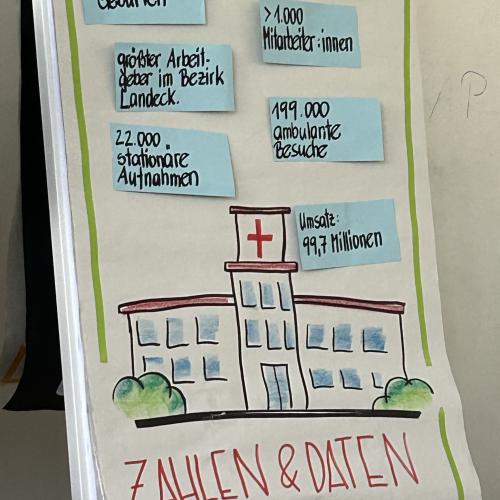 Geburten
>1.000
Mitarbeiter:innen
größter Arbeit-
geber im Bezirk
Landeck.
199.000
ambulante
Besuche
22.000
stationäre
Aufnahmen
Umsatz:
99,7 Millionen
ZAHLEN & DATEN